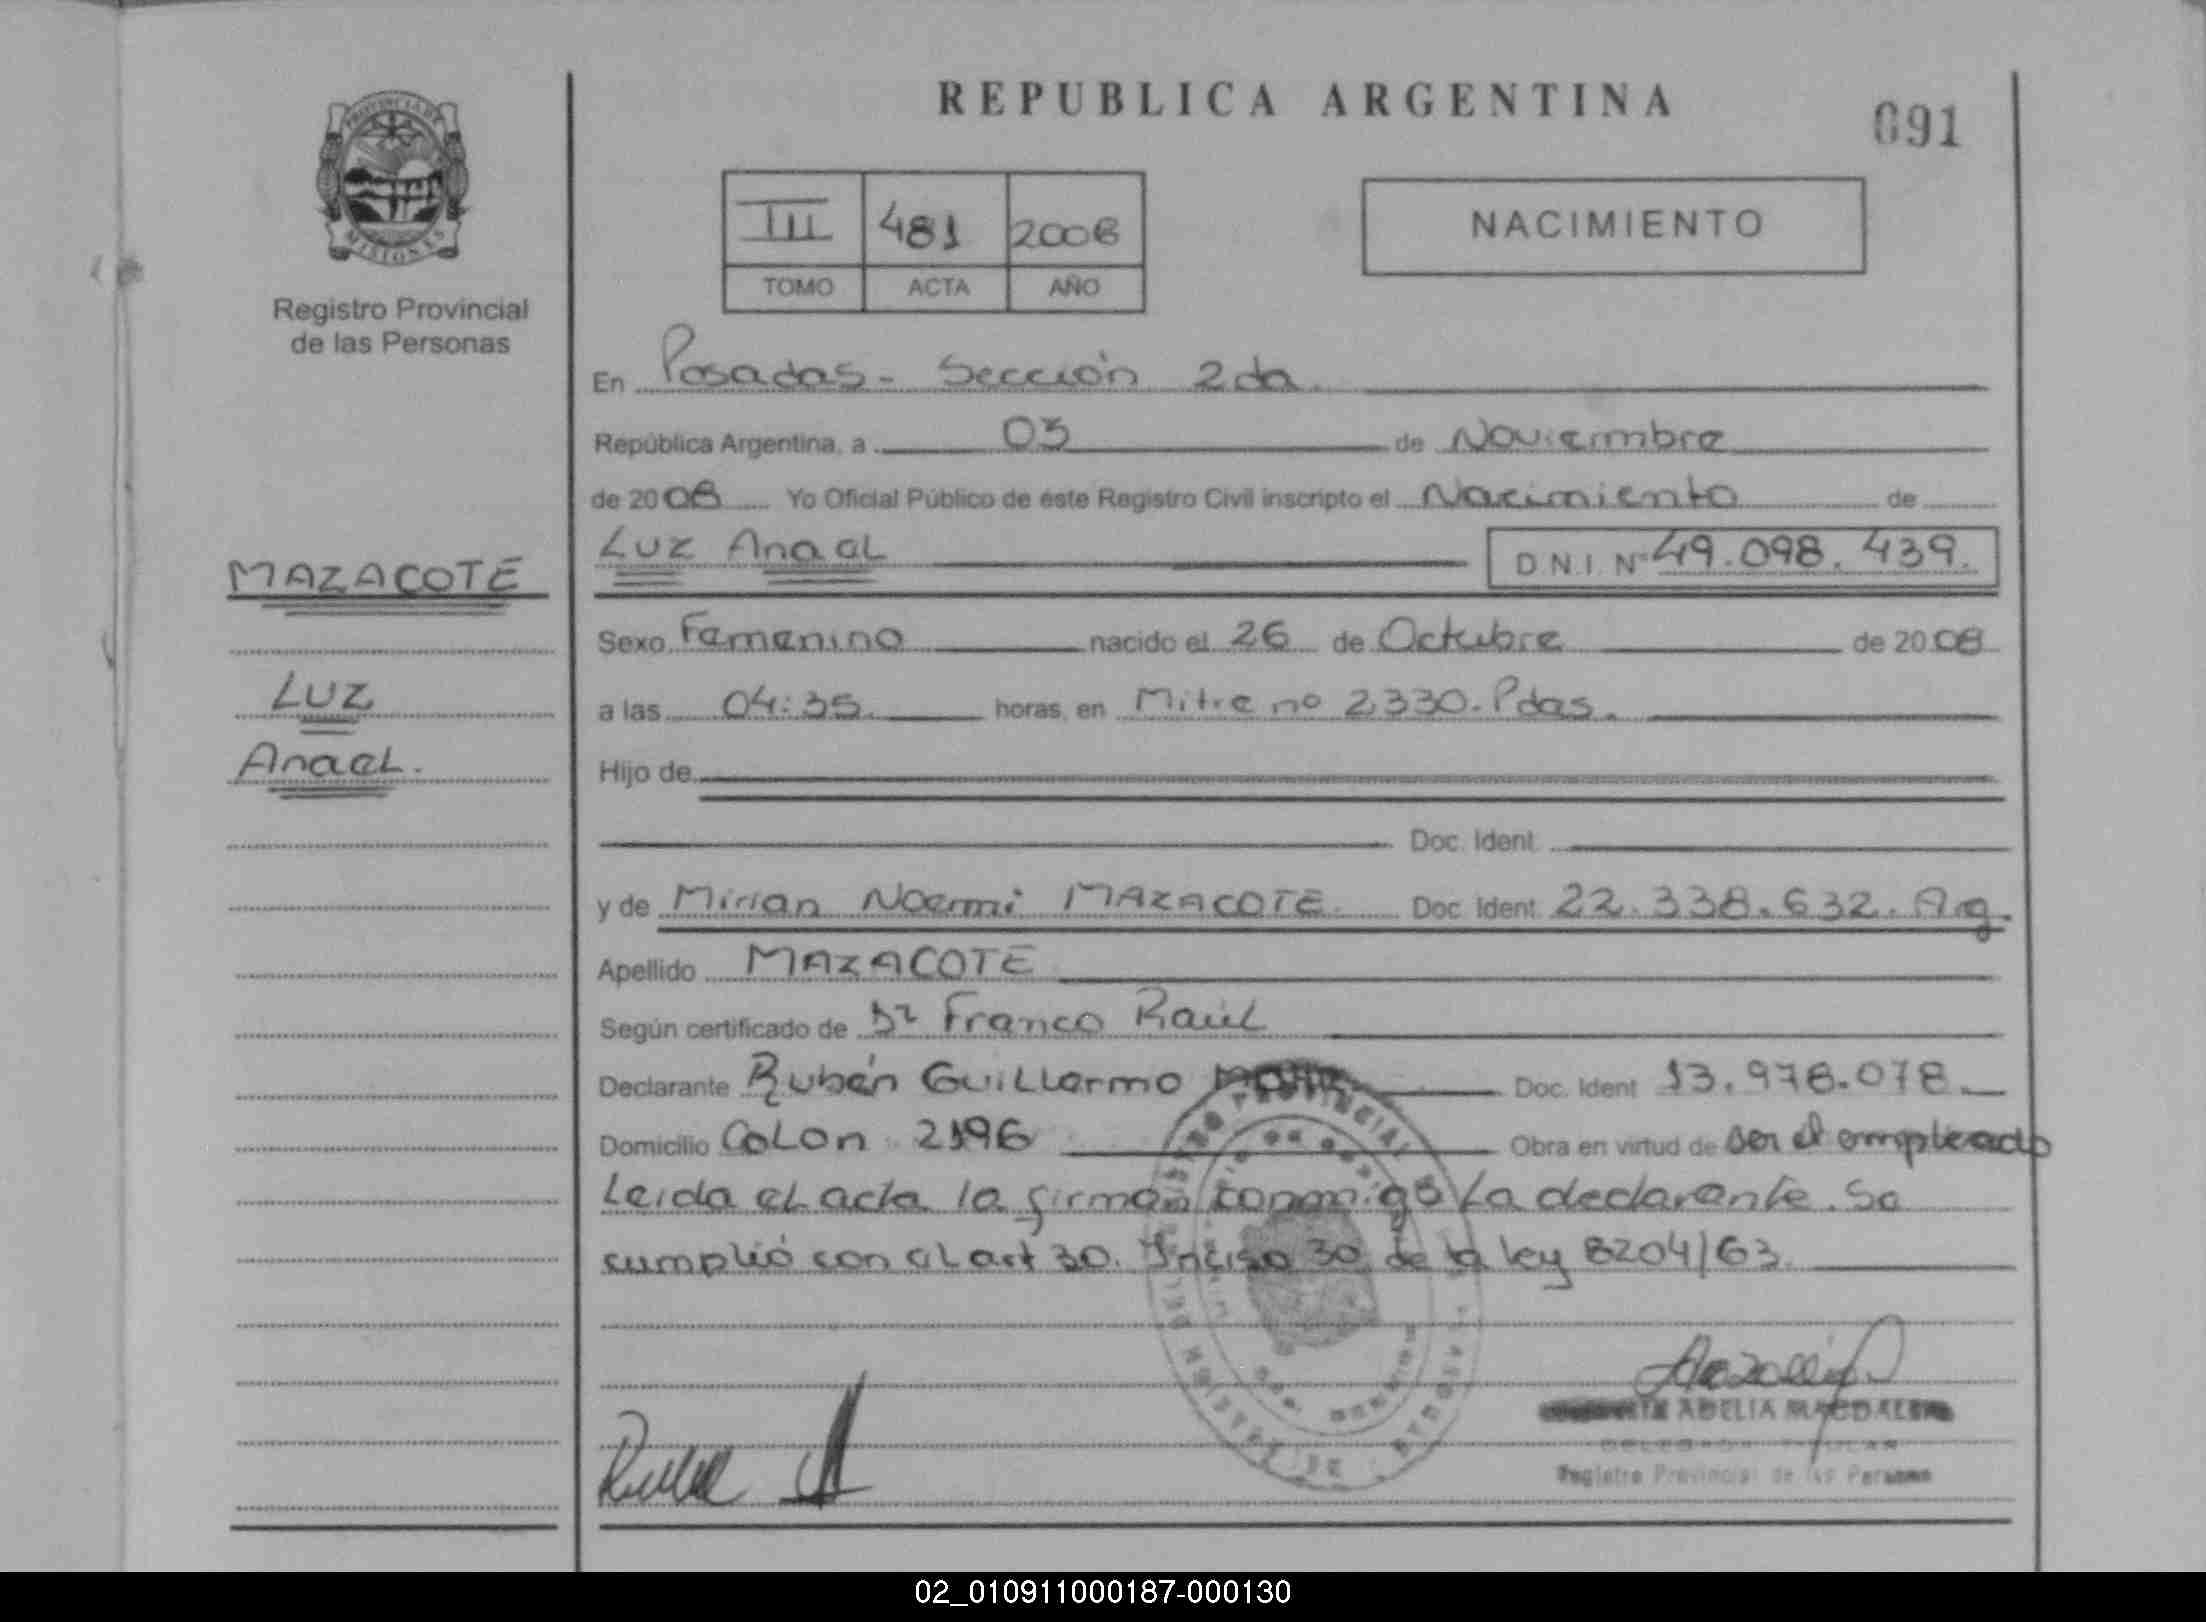 REPUBLICA ARGENTINA
091
PROVINCIA DE
MISIONES
Registro Provincial
de las Personas
III 481 2008
TOMO ACTA AÑO
NACIMIENTO
En Posadas - Sección 2da.
República Argentina, a 03 de Noviembre
de 2008 Yo Oficial Público de éste Registro Civil inscripto el Nacimiento de
MAZACOTE
LUZ
Anael.
Luz Anael D.N.I. Nº 49.098.439.
Sexo Femenino nacido el 26 de Octubre de 2008
a las 04:35. horas, en Mitre nº 2330. Pdas.
Hijo de
Doc. Ident.
y de Mirian Noemi MAZACOTE. Doc. Ident. 22.338.632. Arg.
Apellido MAZACOTE
Según certificado de Dr Franco Raúl
Declarante Rubén Guillermo Doc. Ident. 13.978.078.
Domicilio Colon 2196 Obra en virtud de ser el empleado
Leida el acta la firman conmigo La declarante. Se
cumplió con el art 30. Inciso 30 de la ley 8204/63.
ADELIA MAGDALENA
DELEGADA TITULAR
Registro Provincial de las Personas
02_010911000187-000130